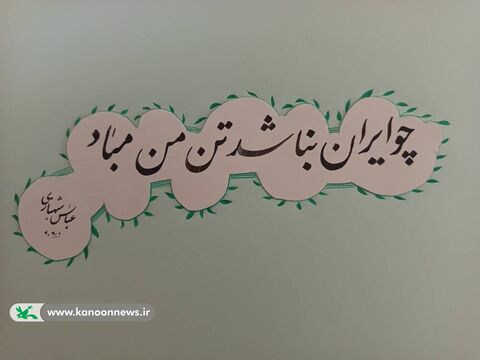 چو ایران نباشد تن من مباد
عباس
www.kanoonnews.ir